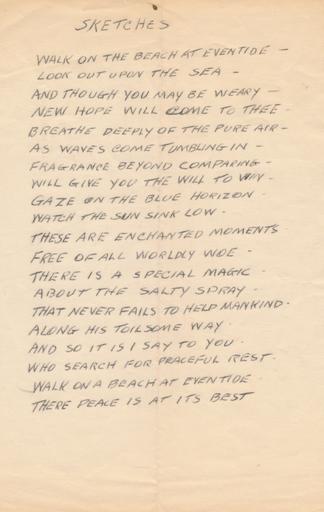 SKETCHES
WALK ON THE BEACH AT EVENTIDE -
LOOK OUT UPON THE SEA -
AND THOUGH YOU MAY BE WEARY -
NEW HOPE WILL COME TO THEE -
BREATHE DEEPLY OF THE PURE AIR -
AS WAVES COME TUMBLING IN -
FRAGRANCE BEYOND COMPARING -
WILL GIVE YOU THE WILL TO WIN -
GAZE ON THE BLUE HORIZON -
WATCH THE SUN SINK LOW -
THESE ARE ENCHANTED MOMENTS
FREE OF ALL WORLDLY WOE -
THERE IS A SPECIAL MAGIC -
ABOUT THE SALTY SPRAY -
THAT NEVER FAILS TO HELP MANKIND -
ALONG HIS TOILSOME WAY -
AND SO IT IS I SAY TO YOU -
WHO SEARCH FOR PEACEFUL REST -
WALK ON A BEACH AT EVENTIDE -
THERE PEACE IS AT ITS BEST